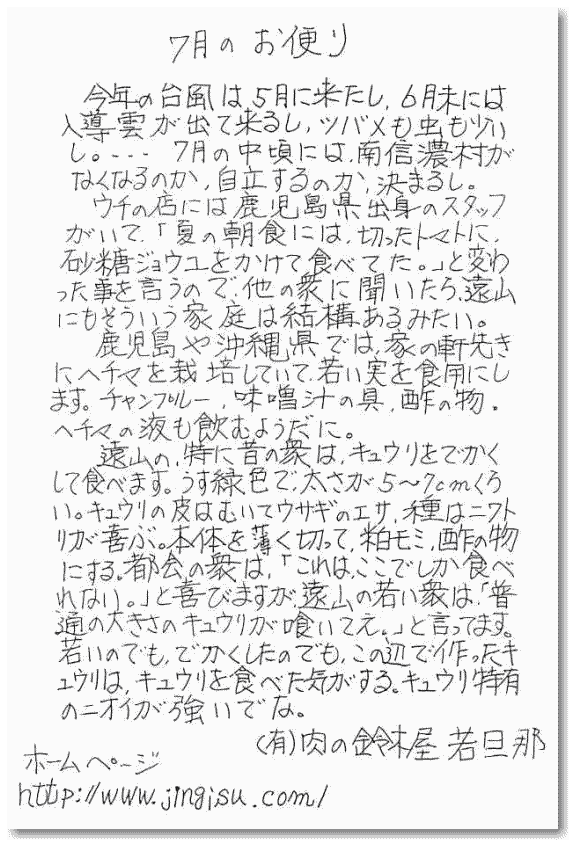 7月のお便り
今年の台風は5月に来たし,6月末には
入導雲が出て来るし,ツバメも虫も少い
し。--- 7月の中頃には,南信濃村が
なくなるのか,自立するのか,決まるし。
ウチの店には鹿児島県出身のスタッフ
がいて,「夏の朝食には,切ったトマトに,
砂糖ジョウユをかけて食べてた。」と変わ
った事を言うので,他の衆に聞いたら,遠山
にもそういう家庭は結構あるみたい。
鹿児島や沖縄県では,家の軒先き
にヘチマを栽培していて,若い実を食用にし
ます。チャンプルー,味噌汁の具,酢の物。
ヘチマの液も飲むようだに。
遠山の,特に昔の衆は,キュウリをでかく
して食べます。うす緑色で,太さが5〜7cmくら
い。キュウリの皮はむいてウサギのエサ,種はニワト
リが喜ぶ。本体を薄く切って,粕モミ,酢の物
にする。都会の衆は,「これは,ここでしか食べ
れない。」と喜びますが,遠山の若い衆は,「普
通の大きさのキュウリが喰いてえ。」と言ってます。
若いのでも,でかくしたのでも,この辺で作ったキ
ュウリは,キュウリを食べた気がする。キュウリ特有
のニオイが強いでな。
(有)肉の鈴木屋 若旦那
ホームページ
http://www.jingisu.com/